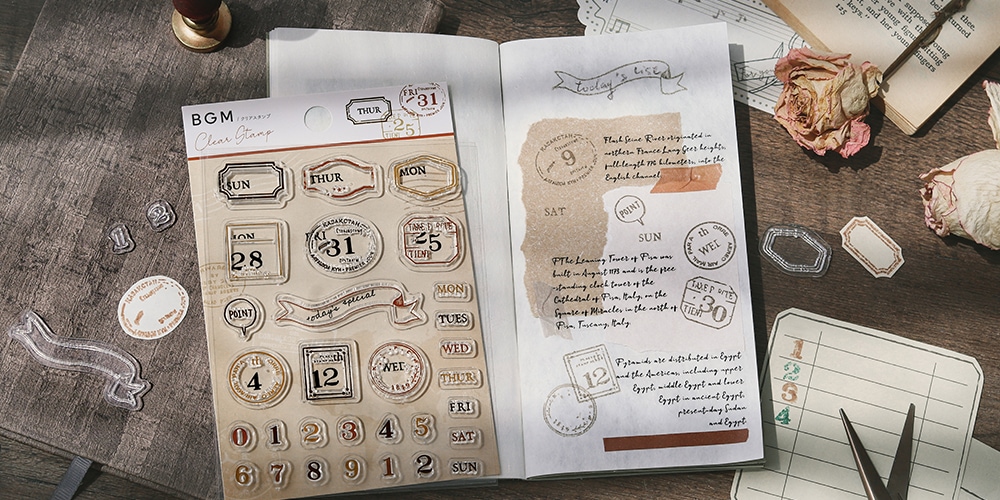 BGM
クリアスタンプ
Clear Stamp
THUR
FRI
31
25
SUN
THUR
MON
28
KAZAKCTAN
31
TAKE D DITE
25
TIENT
POINT
today's special
MON
TUES
WED
THUR
FRI
SAT
SUN
th
4
month
12
WEI
0 1 2 3 4 5
6 7 8 9 1 2
today's
KAZAKCTAN
9
Flash Seine River originated in
northern France Lang Geer heights,
full-length 776 kilometers, into the
English channel
SAT
POINT
SUN
th
WEI
TAKE D DITE
30
TIENT
The Leaning Tower of Pisa was
built in August 1173 and is the free
-standing clock tower of the
Cathedral of Pisa, Italy, on the
Square of Miracles in the north of
Pisa, Tuscany, Italy.
month
12
Pyramids are distributed in Egypt
and the Americas, including upper
Egypt, middle Egypt and lower
Egypt in ancient Egypt,
present-day Sudan
and Egypt
supposed
thee.
returned
"and her young
keys."
125
1
2
3
4